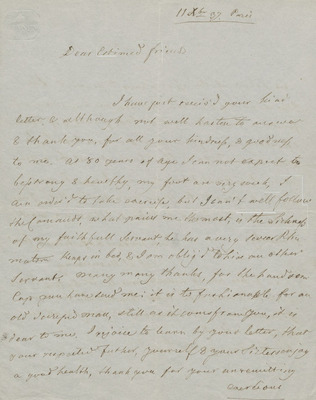 11 Xbr 37 Paris
Dear Esteemed friend
I have just receiv'd your kind
letter & although not well hasten to answer
& thank you, for all your kindness, & goodness
to me. at 80 years of age I can not expect to
be strong & healthy, my feet are very weak, I
am order'd to take exercise, but I can't well follow
the Command, what pains me the most, is the
of my faithfull Servant, he has a very severe Rheu
matism keeps in bed, & I am oblig'd to hire an other
Servant. Many many thanks, for the handsome
Cap you have send me; it is to fashionable for an
old decrepid man, still as it comes from you, it is
dear to me. I rejoice to learn by your letter, that
your respected father, yourself & your Sisters enjoy
a good health, thank you for your unremitting